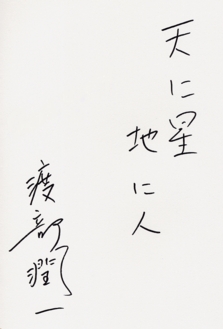 天に星
地に人
渡部潤一